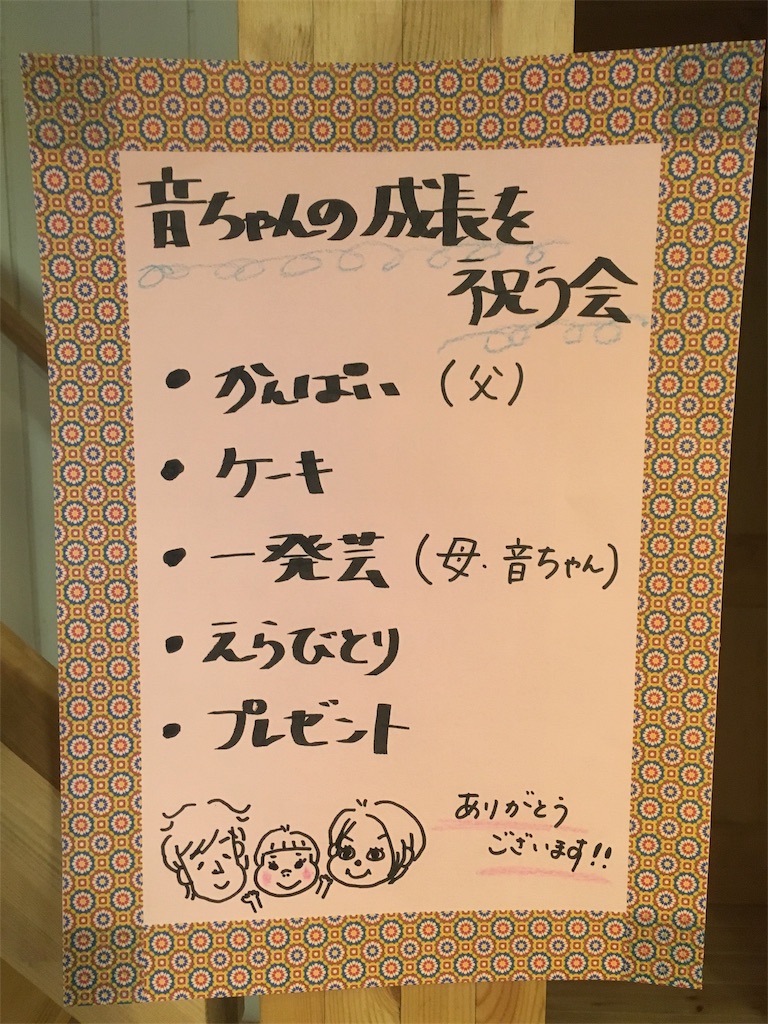 音ちゃんの成長を
祝う会
• かんぱい (父)
• ケーキ
• 一発芸 (母・音ちゃん)
• えらびとり
• プレゼント
ありがとう
ございます!!